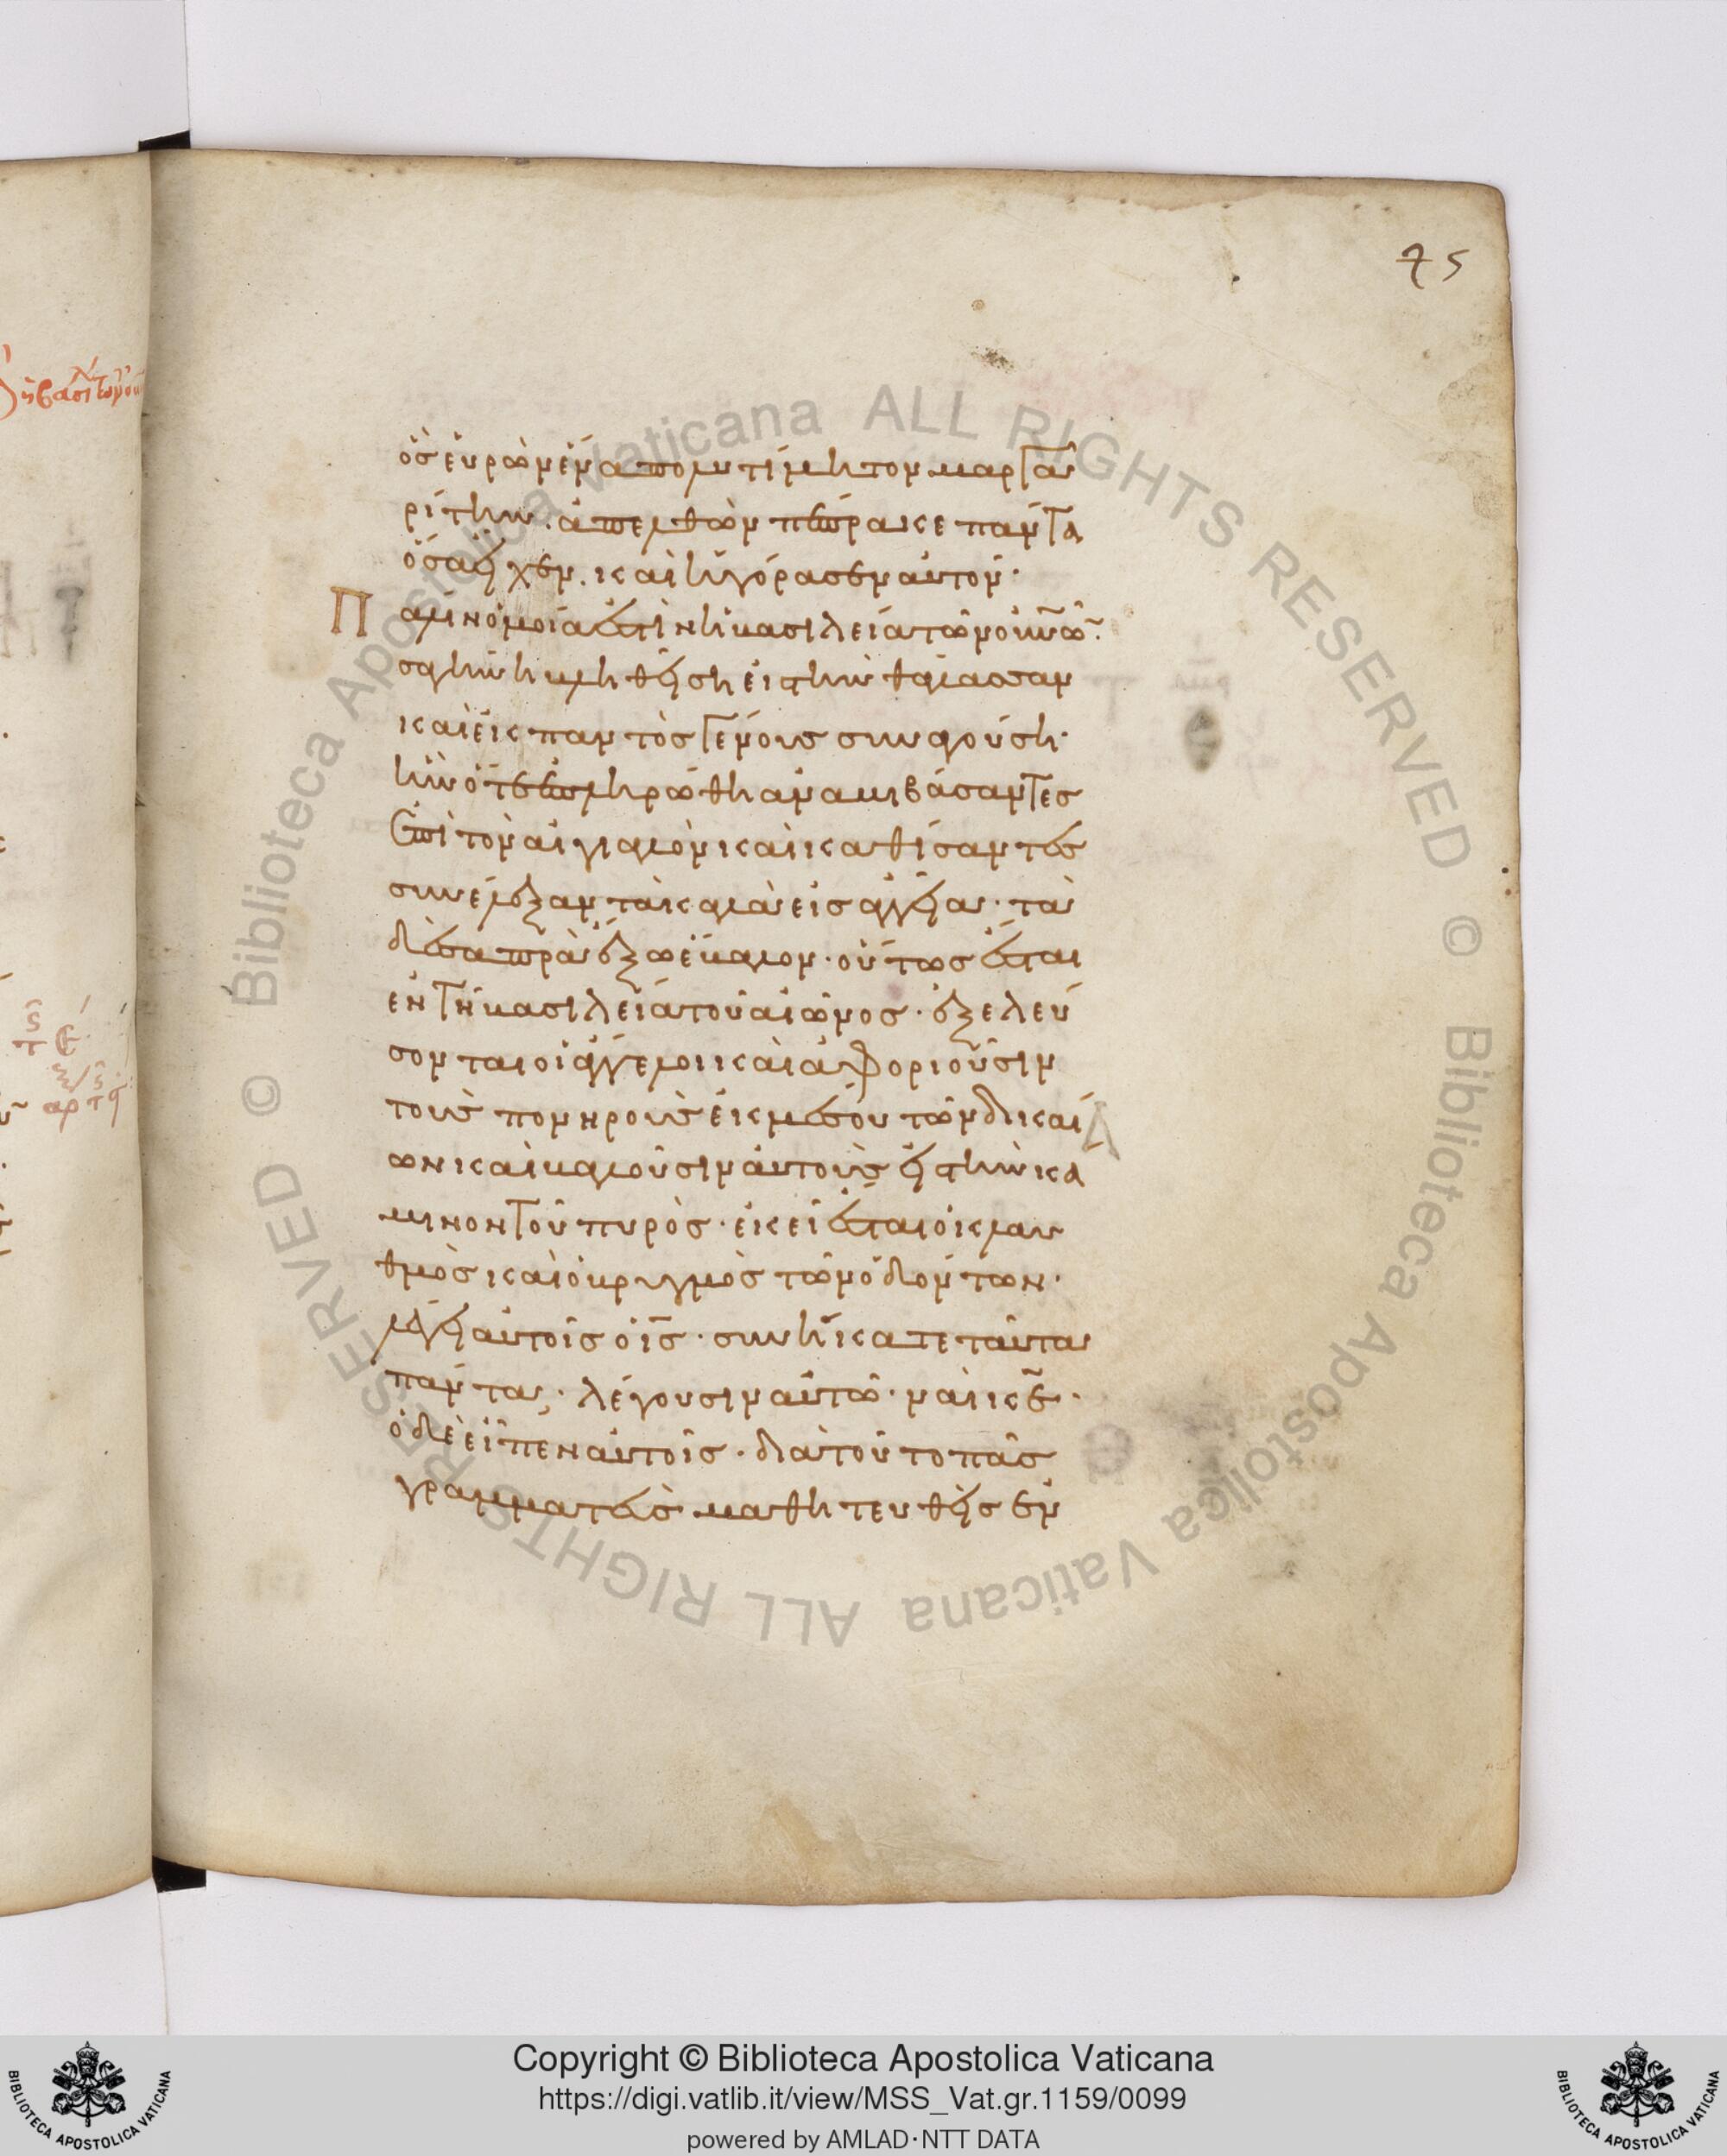 75
ὃσ εὑρὼν ἕνα πολυτίμητον μαργα
ρίτην. ἀπελθὼν πέπρακε πάντα
ὅσα εἶχεν. καὶ ἠγόρασεν αὐτόν·
Πάλιν ὁμοία ἐστὶν ἡ βασιλεία τῶν οὐνῶν
σαγήνη βληθείση εἰς τὴν θάλασσαν
καὶ ἐκ παντὸσ γένουσ συναγούση·
ἣν ὅτε ἐπληρώθη ἀναβιβάσαντεσ
ἐπὶ τὸν αἰγιαλὸν καὶ καθίσαντεσ
συνέλεξαν τὰ καλὰ εἰσ ἀγγεῖα· τὰ
δὲ σαπρὰ ἔξω ἔβαλον· οὕτωσ ἔσται
ἐν τῆ βασιλεία τοῦ αἰῶνοσ· ἐξελεύ
σονται οἱ ἄγγελοι καὶ ἀφοριοῦσιν
τοὺσ πονηροὺσ ἐκ μέσου τῶν δικαί
ων καὶ βαλοῦσιν αὐτοὺσ εἰς τὴν κά
μινον τοῦ πυρόσ· ἐκεῖ ἔσται ὁ κλαυ
θμὸσ καὶ ὁ βρυγμὸσ τῶν ὀδόντων·
λέγει αὐτοῖσ ὁ ισ· συνήκατε ταῦτα
πάντα; λέγουσιν αὐτῶ· ναὶ κε·
ὁ δὲ εἶπεν αὐτοῖσ· διὰ τοῦτο πᾶσ
γραμματεὺσ μαθητευθεὶσ ἐν
Copyright © Biblioteca Apostolica Vaticana
https://digi.vatlib.it/view/MSS_Vat.gr.1159/0099
powered by AMLAD·NTT DATA
BIBLIOTECA APOSTOLICA VATICANA
BIBLIOTECA APOSTOLICA VATICANA
© Biblioteca Apostolica Vaticana ALL RIGHTS RESERVED © Biblioteca Apostolica Vaticana ALL RIGHTS RESERVED